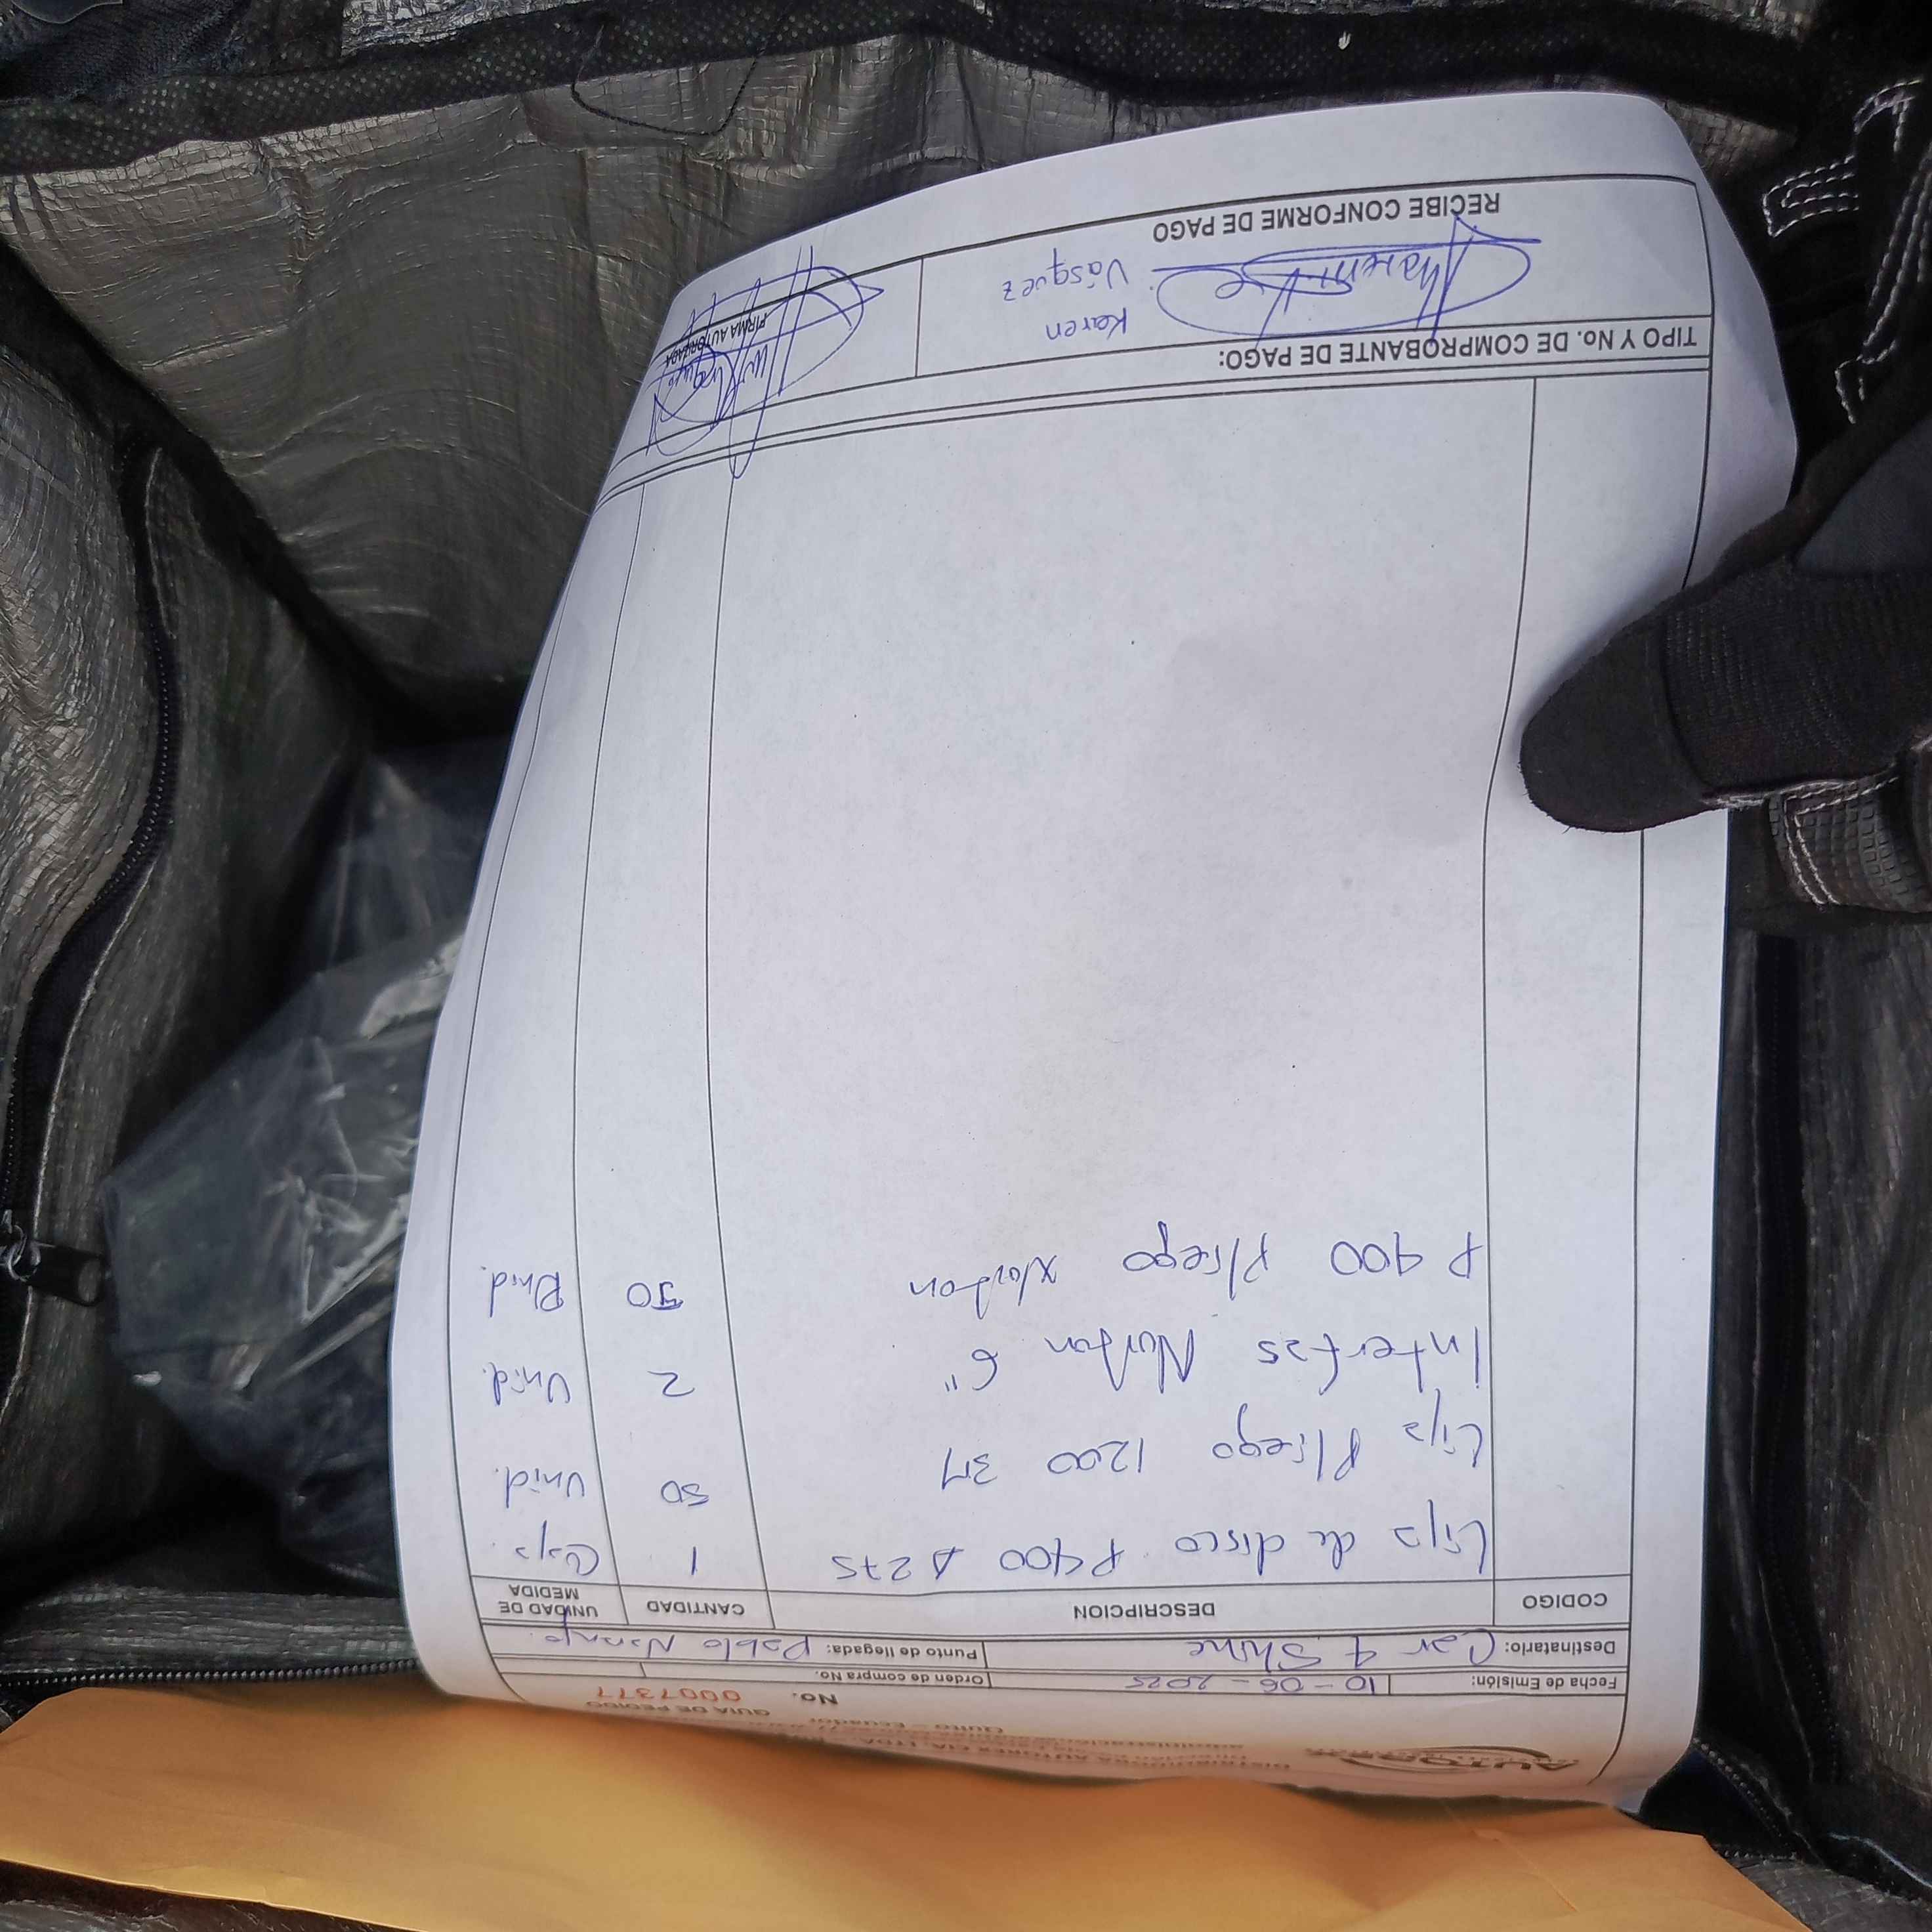 AUTOREX
DISTRIBUIDORA AUTOREX CIA. LTDA.
Quito - Ecuador
GUIA DE PEDIDO
No. 0007377
Fecha de Emisión: 10-06-2025 Orden de compra No.
Destinatario: Car 4 Shine Punto de llegada: Pablo Naranjo.
CODIGO DESCRIPCION CANTIDAD UNIDAD DE MEDIDA
Lija de disco P400 A275 1 Caja.
Lija Pliego 1200 3M 50 Unid.
Interfas Norton 6" 2 Unid.
P400 Pliego Norton 50 Unid.
TIPO Y No. DE COMPROBANTE DE PAGO:
Karen
Vásquez
RECIBE CONFORME DE PAGO
FIRMA AUTORIZADA